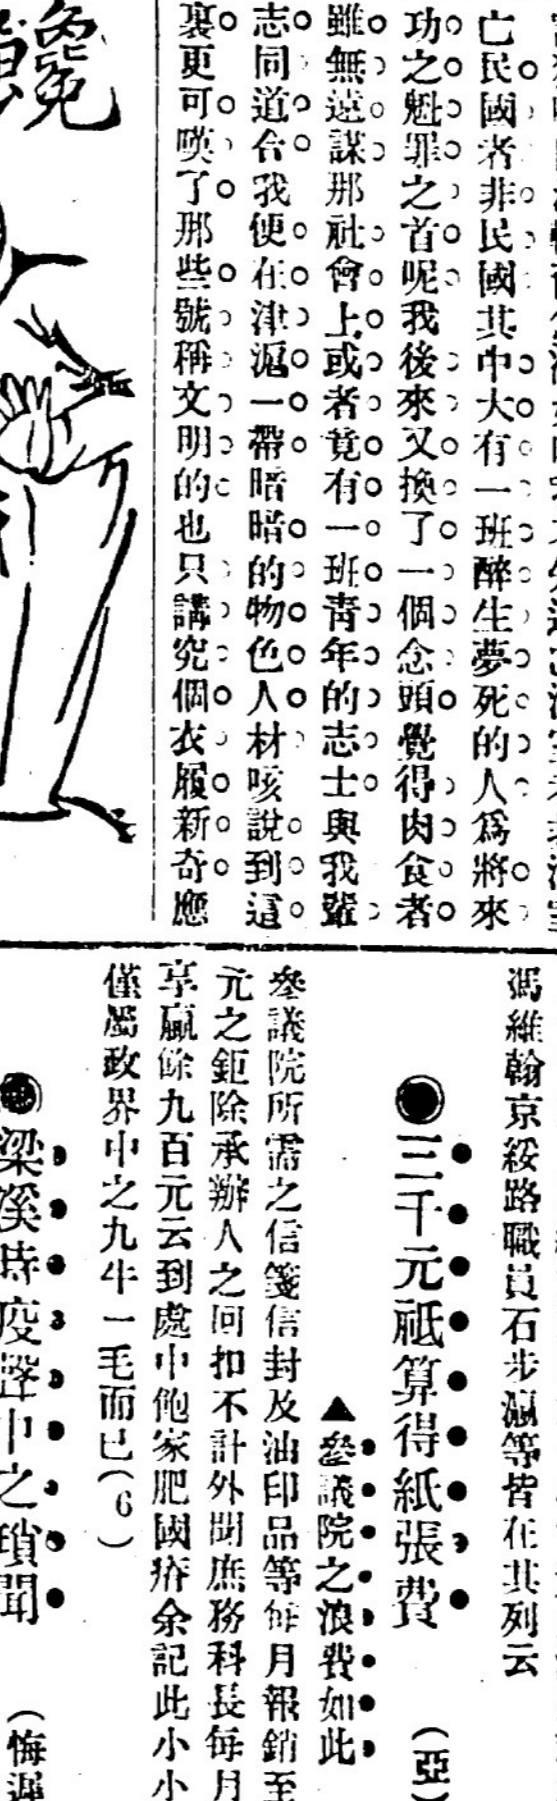 亡民國者非民國其中大有一班醉生夢死的人爲將來
功之魁罪之首呢我後來又換了一個念頭覺得肉食者
雖無遠謀那社會上或者竟有一班青年的志士與我輩
志同道合我便在津滬一帶暗暗的物色人材咳說到這
裏更可嘆了那些號稱文明的也只講究個衣履新奇應
馮維翰京綏路職員石步瀛等皆在其列云
●三千元祗算得紙張費 (亞)
▲參議院之浪費如此
參議院所需之信箋信封及油印品等每月報銷至
元之鉅除承辦人之回扣不計外聞庶務科長每月
享贏餘九百元云到處中飽家肥國瘠余記此小小
僅屬政界中之九牛一毛而已(6)
●梁溪時疫聲中之瑣聞 (悔遲